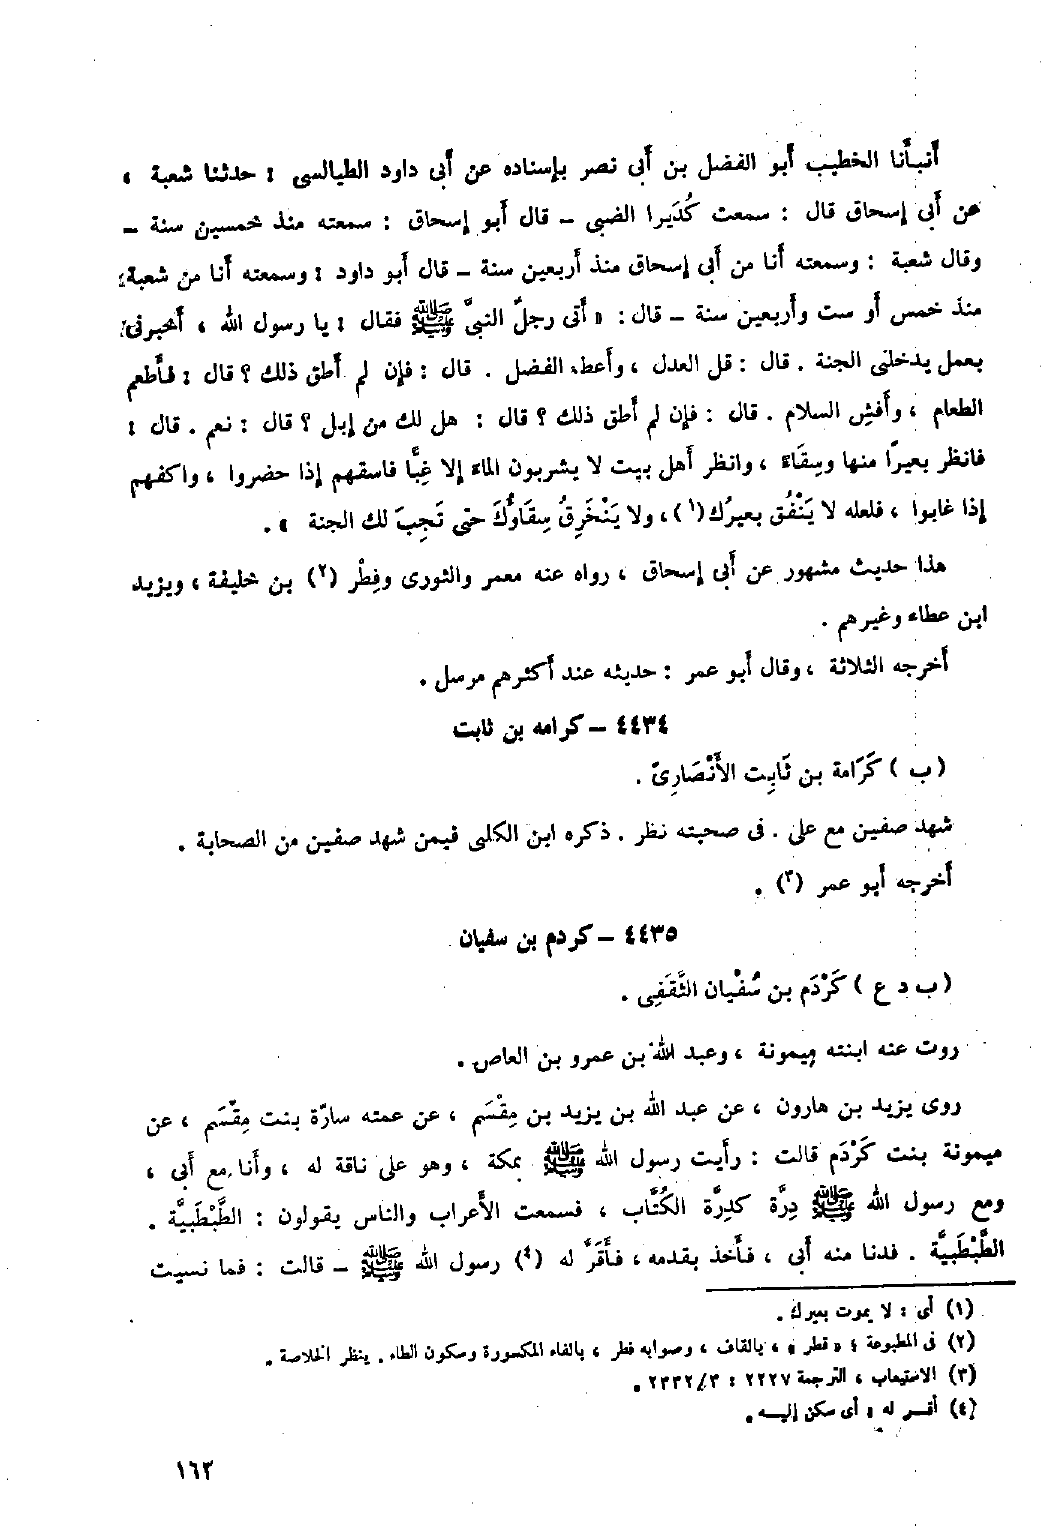 أنبأنا الخطيب أبو الفضل بن أبى نصر بإسناده عن أبى داود الطيالسى : حدثنا شعبة ،
عن أبى إسحاق قال : سمعت كُدَيرا الضبى – قال أبو إسحاق : سمعته منذ خمسين سنة –
وقال شعبة : وسمعته أنا من أبى إسحاق منذ أربعين سنة – قال أبو داود : وسمعته أنا من شعبة
منذ خمس أو ست وأربعين سنة – قال : « أتى رجلٌ النبىَّ ﷺ فقال : يا رسول الله ، أخبرنى
بعمل يدخلنى الجنة . قال : قل العدل ، وأعط الفضل . قال : فإن لم أطق ذلك ؟ قال : فأطعم
الطعام ، وأفشِ السلام . قال : فإن لم أطق ذلك ؟ قال : هل لك من إبل ؟ قال : نعم . قال :
فانظر بعيرًا منها وسِقَاءً ، وانظر أهل بيت لا يشربون الماء إلا غِبًّا فاسقهم إذا حضروا ، واكفهم
إذا غابوا ، فلعله لا يَنْفُق بعيرُك(١) ، ولا يَنْخَرِقُ سِقَاوُكَ حتى تَجِبَ لك الجنة » .
هذا حديث مشهور عن أبى إسحاق ، رواه عنه معمر والثورى وفِطْر (٢) بن خليفة ، ويزيد
ابن عطاء وغيرهم .
أخرجه الثلاثة ، وقال أبو عمر : حديثه عند أكثرهم مرسل .
٤٤٣٤ – كرامه بن ثابت
( ب ) كَرَامة بن ثَابِت الأَنْصَارِىّ .
شهد صفين مع على . فى صحبته نظر . ذكره ابن الكلبى فيمن شهد صفين من الصحابة .
أخرجه أبو عمر (٣) .
٤٤٣٥ – كردم بن سفيان
( ب د ع ) كَرْدَم بن سُفْيان الثَّقَفِى .
روت عنه ابنته ميمونة ، وعبد الله بن عمرو بن العاص .
روى يزيد بن هارون ، عن عبد الله بن يزيد بن مِقْسَم ، عن عمته سارّة بنت مِقْسَم ، عن
ميمونة بنت كَرْدَم قالت : رأيت رسول الله ﷺ بمكة ، وهو على ناقة له ، وأنا مع أبى ،
ومع رسول الله ﷺ دِرَّة كدِرَّة الكُتَّاب ، فسمعت الأعراب والناس يقولون : الطَّبْطَبِيَّة .
الطَّبْطَبِيَّة . فدنا منه أبى ، فأخذ بقدمه ، فأَقَرَّ له (٤) رسول الله ﷺ – قالت : فما نسيت
(١) أى : لا يموت بعيرك .
(٢) فى المطبوعة : « قطر » ، بالقاف ، وصوابه فطر ، بالفاء المكسورة وسكون الطاء . ينظر الخلاصة .
(٣) الاستيعاب ، الترجمة ٢٢٢٧ : ١٣٣٢/٣ .
(٤) أقر له : أى سكن إليه .
١٦٢